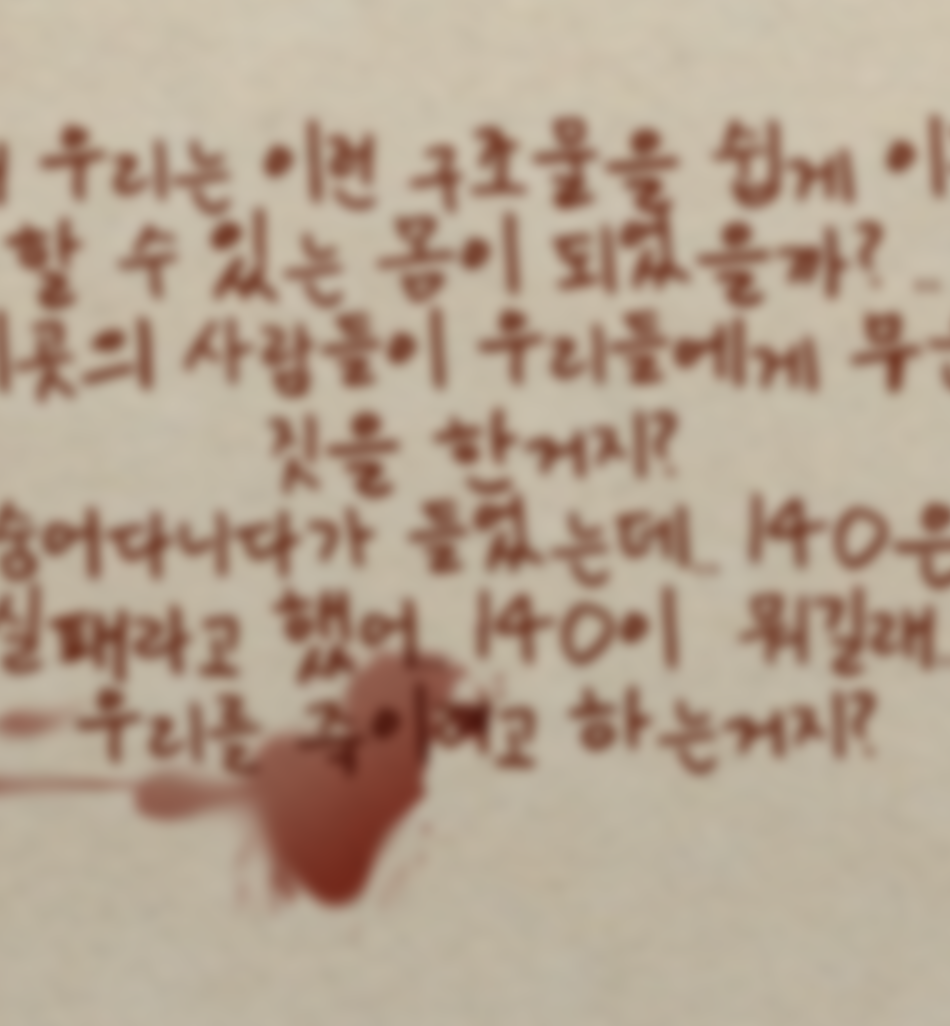 우리는 이런 구조물을 쉽게 이
할 수 있는 몸이 되었을까? ..
곳의 사람들이 우리들에게
짓을 한거지?
숨어다니다가 들었는데.. 140은
실패라고 했어 140이 뭐길래..
우리를 하는거지?